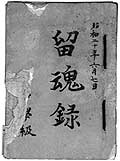 昭和二十年六月七日
留魂録
級